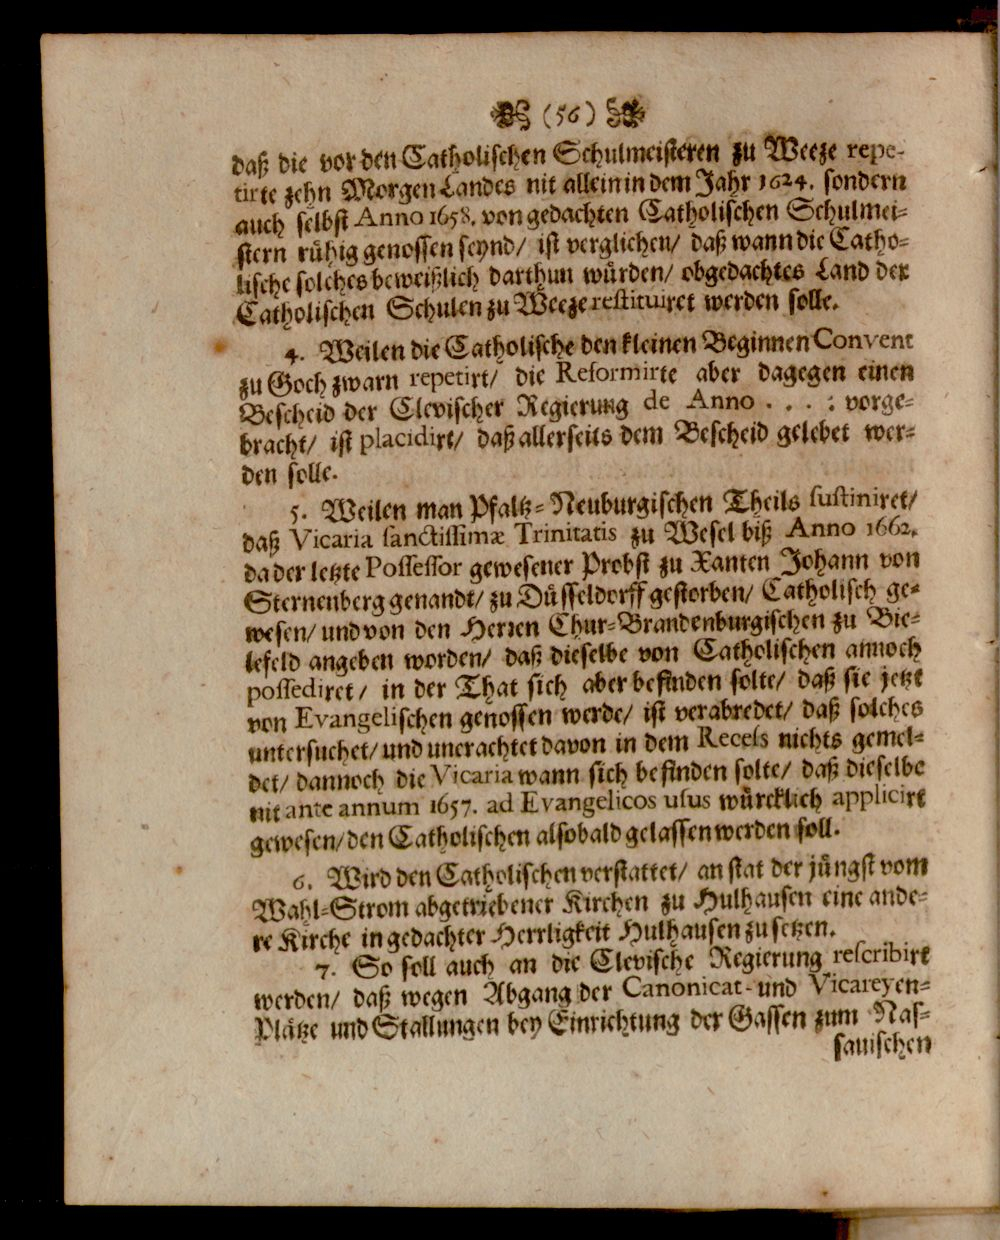 (56)
daß die vor den Catholischen Schulmeisteren zu Weeze repe-
tirte zehn Morgen Landes nit allein in dem Jahr 1624. sondern
auch selbst Anno 1658. von gedachten Catholischen Schulmei-
stern rühig genossen seynd/ ist verglichen/ daß wann die Catho-
lische solches beweißlich darthun würden/ obgedachtes Land der
Catholischen Schulen zu Weeze restituiret werden solle.
4. Weilen die Catholische den kleinen Beginnen Convent
zu Goch zwarn repetirt/ die Reformirte aber dagegen einen
Bescheid der Clevischer Regierung de Anno . . . : vorge-
bracht/ ist placidirt/ daß allerseits dem Bescheid gelebet wer-
den solle.
5. Weilen man Pfaltz-Neuburgischen Theils sustiniret/
daß Vicaria sanctissimæ Trinitatis zu Wesel biß Anno 1662.
da der letzte Possessor gewesener Probst zu Xanten Johann von
Sternenberg genandt/ zu Düsseldorff gestorben/ Catholisch ge-
wesen/ und von den Herren Chur-Brandenburgischen zu Bie-
lefeld angeben worden/ daß dieselbe von Catholischen annoch
possediret/ in der That sich aber befinden solte/ daß sie jetzt
von Evangelischen genossen werde/ ist verabredet/ daß solches
untersuchet/ und unerachtet davon in dem Recess nichts gemel-
det/ dannoch die Vicaria wann sich befinden solte/ daß dieselbe
nit ante annum 1657. ad Evangelicos usus würcklich applicirt
gewesen/ den Catholischen alsobald gelassen werden soll.
6. Wird den Catholischen verstattet/ an stat der jüngst vom
Wahl-Strom abgetriebener Kirchen zu Hulhausen eine ande-
re Kirche in gedachter Herrligkeit Hulhausen zu setzen.
7. So soll auch an die Clevische Regierung rescribirt
werden/ daß wegen Abgang der Canonicat- und Vicareyen-
Plätze und Stallungen bey Einrichtung der Gassen zum Nas-
sauischen